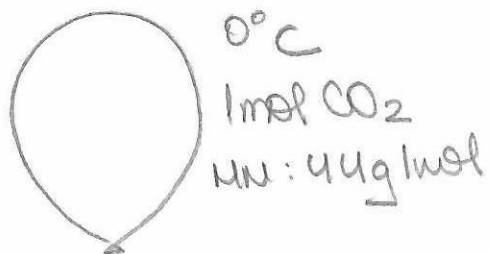 0°C
1mol CO2
MM: 44g/mol